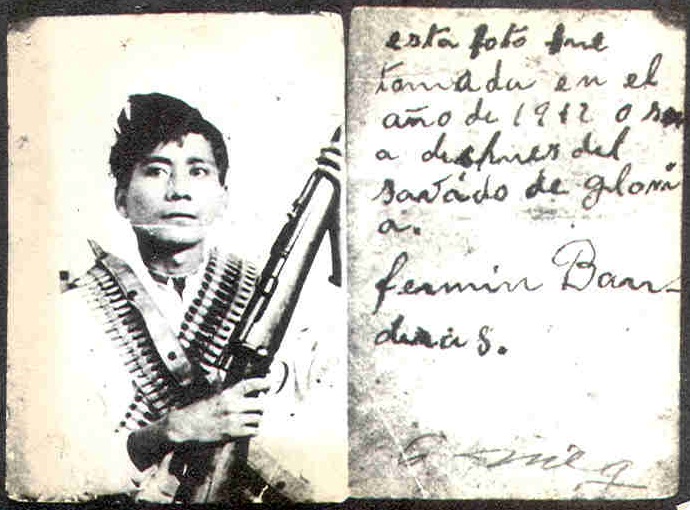 esta foto fue
tomada en el
año de 1912 o se
a despues del
savado de glori
a.
fermin Barr-
deras.